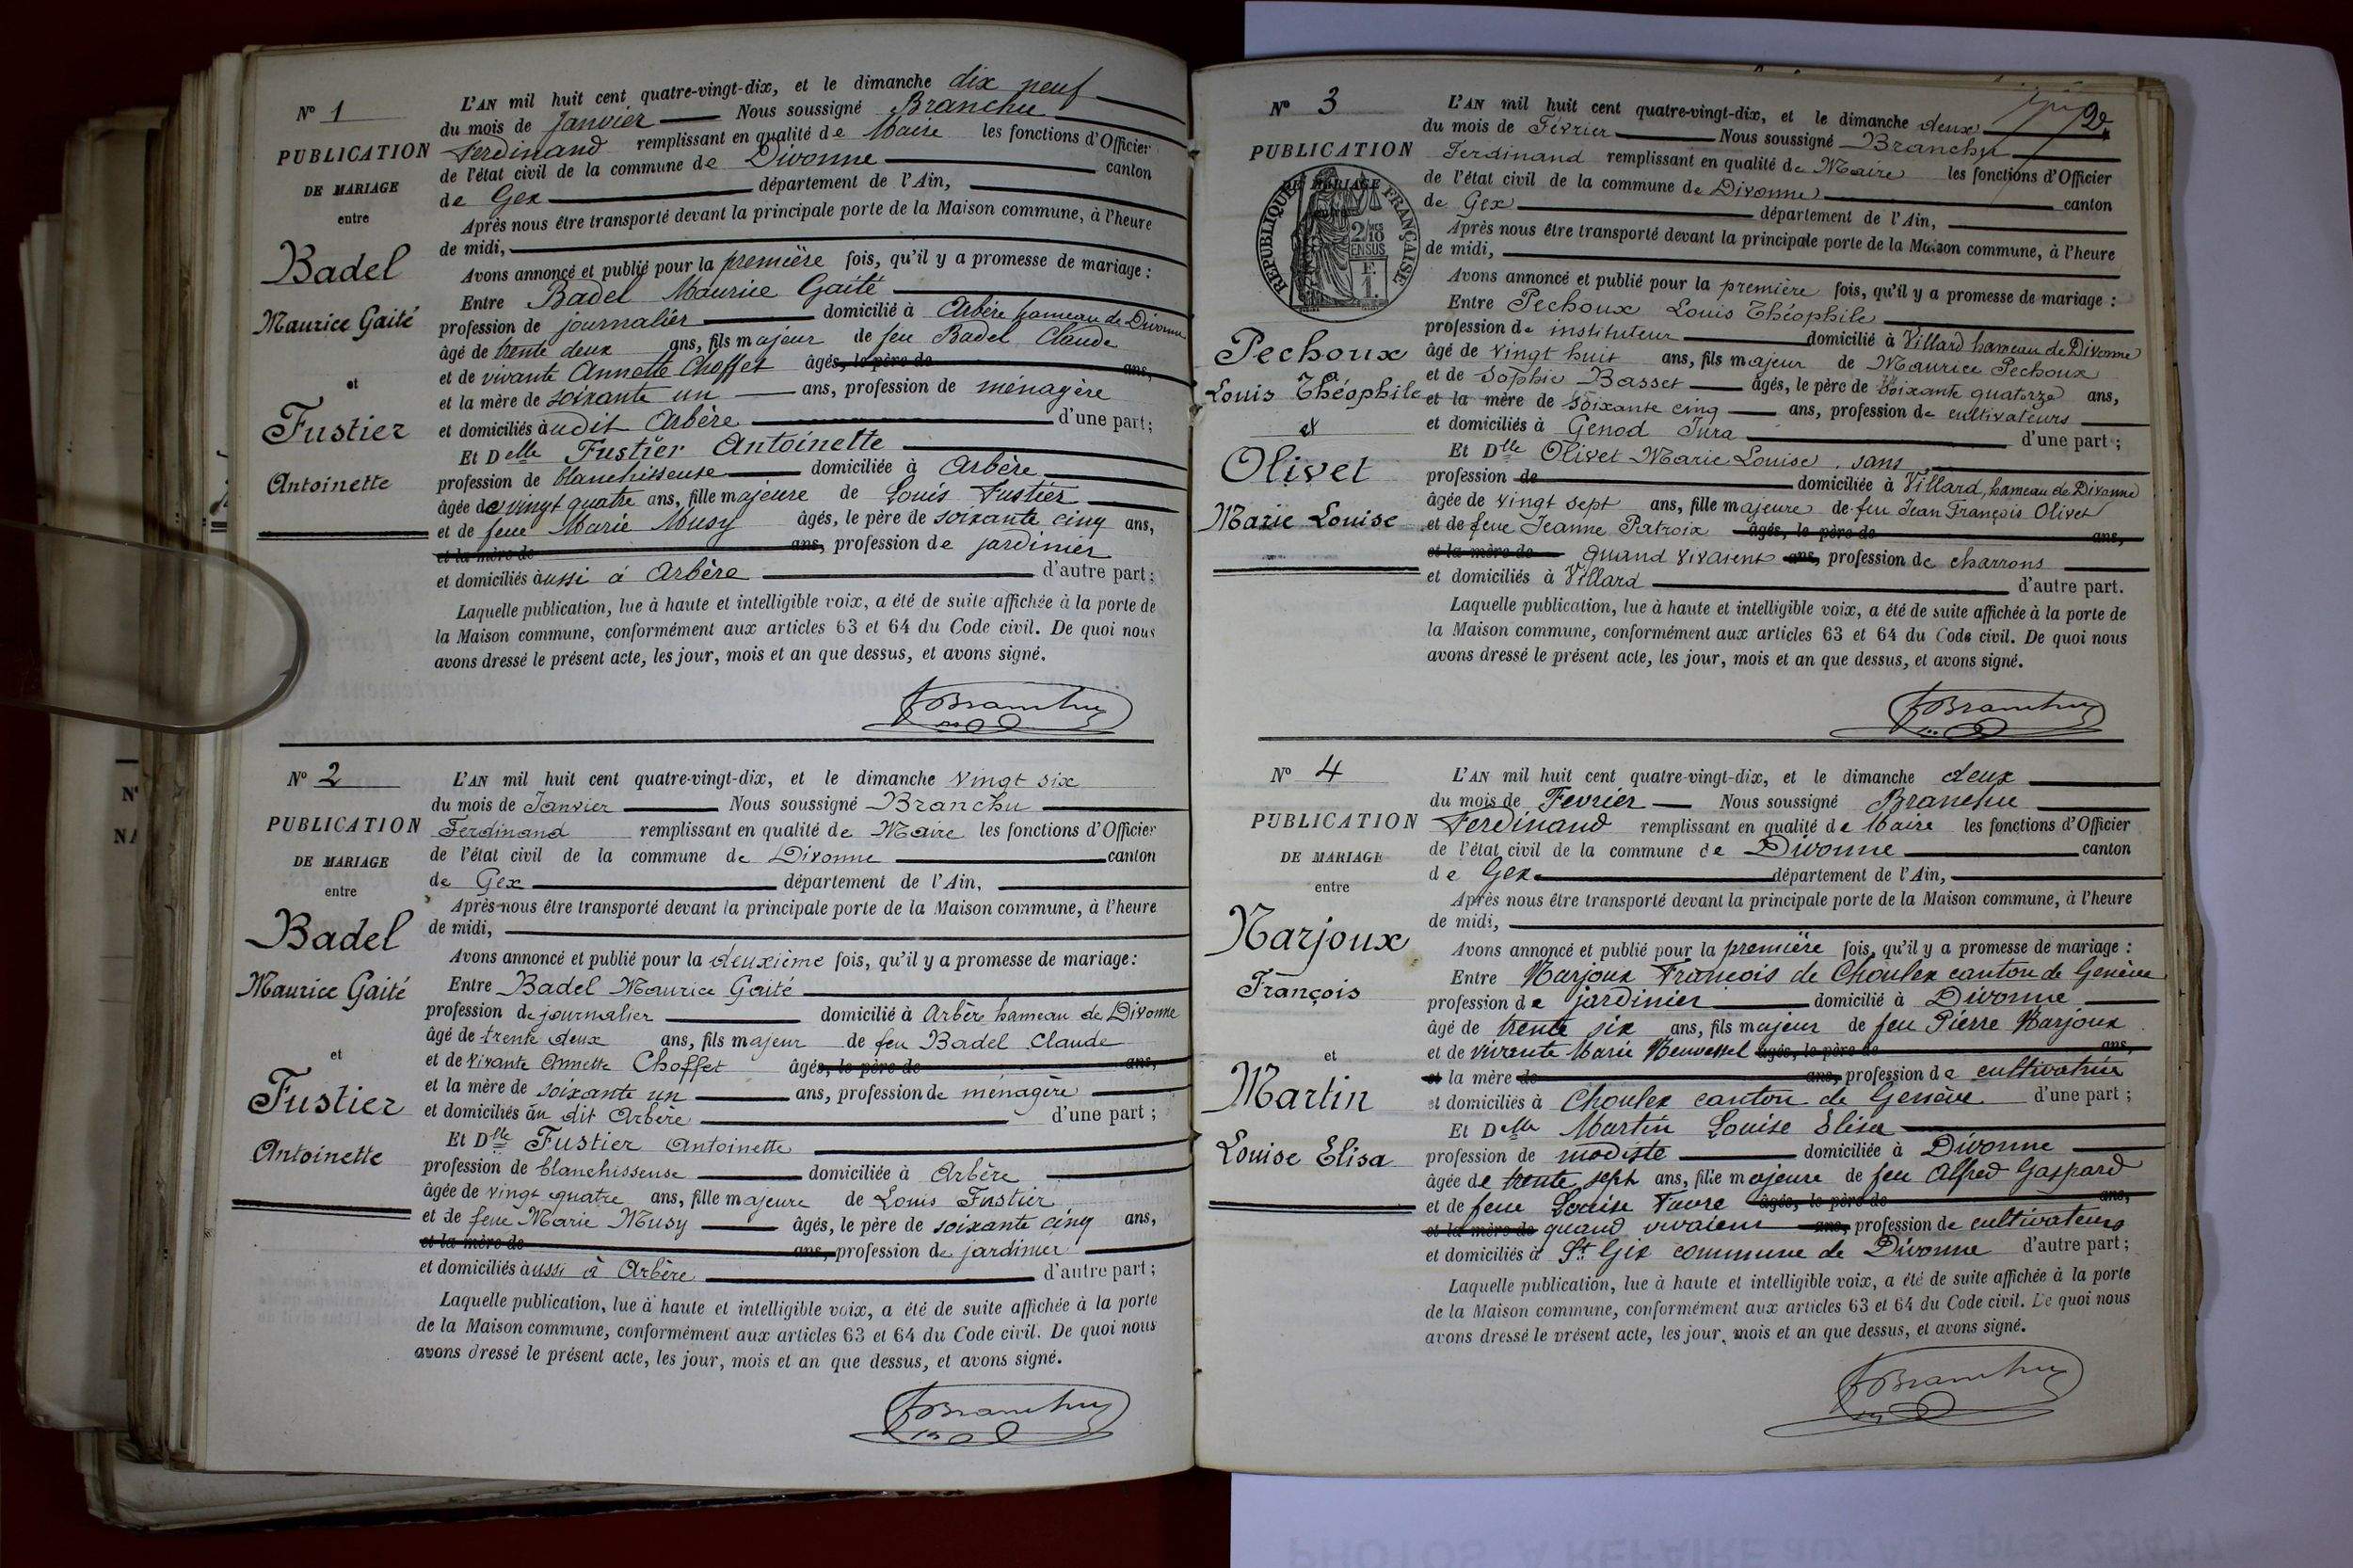 N° 1
PUBLICATION
DE MARIAGE
entre
Badel
Maurice Gaité
et
Fustier
Antoinette
L'AN mil huit cent quatre-vingt-dix, et le dimanche dix neuf
du mois de Janvier Nous soussigné Branchu
Ferdinand remplissant en qualité de Maire les fonctions d'Officier
de l'état civil de la commune de Divonne canton
de Gex département de l'Ain,
Après nous être transporté devant la principale porte de la Maison commune, à l'heure
de midi,
Avons annoncé et publié pour la première fois, qu'il y a promesse de mariage :
Entre Badel Maurice Gaité
profession de journalier domicilié à Arbère hameau de Divonne
âgé de trente deux ans, fils majeur de feu Badel Claude
et de vivante Annette Choffet âgés, le père de ans,
et la mère de soixante un ans, profession de ménagère
et domiciliés àudit Arbère d'une part ;
Et Delle Fustier Antoinette
profession de blanchisseuse domiciliée à Arbère
âgée de vingt quatre ans, fille majeure de Louis Fustier
et de feue Marie Musy âgés, le père de soixante cinq ans,
et la mère de ans, profession de jardinier
et domiciliés àussi à Arbère d'autre part ;
Laquelle publication, lue à haute et intelligible voix, a été de suite affichée à la porte de
la Maison commune, conformément aux articles 63 et 64 du Code civil. De quoi nous
avons dressé le présent acte, les jour, mois et an que dessus, et avons signé.
FBranchu
N° 2
PUBLICATION
DE MARIAGE
entre
Badel
Maurice Gaité
et
Fustier
Antoinette
L'AN mil huit cent quatre-vingt-dix, et le dimanche vingt six
du mois de Janvier Nous soussigné Branchu
Ferdinand remplissant en qualité de Maire les fonctions d'Officier
de l'état civil de la commune de Divonne canton
de Gex département de l'Ain,
Après nous être transporté devant la principale porte de la Maison commune, à l'heure
de midi,
Avons annoncé et publié pour la deuxième fois, qu'il y a promesse de mariage :
Entre Badel Maurice Gaité
profession de journalier domicilié à Arbère hameau de Divonne
âgé de trente deux ans, fils majeur de feu Badel Claude
et de vivante Annette Choffet âgés, le père de ans,
et la mère de soixante un ans, profession de ménagère
et domiciliés àu dit Arbère d'une part ;
Et Dlle Fustier Antoinette
profession de blanchisseuse domiciliée à Arbère
âgée de vingt quatre ans, fille majeure de Louis Fustier
et de feue Marie Musy âgés, le père de soixante cinq ans,
et la mère de ans, profession de jardinier
et domiciliés àussi à Arbère d'autre part ;
Laquelle publication, lue à haute et intelligible voix, a été de suite affichée à la porte
de la Maison commune, conformément aux articles 63 et 64 du Code civil. De quoi nous
avons dressé le présent acte, les jour, mois et an que dessus, et avons signé.
FBranchu
N° 3
PUBLICATION
DE MARIAGE
RÉPUBLIQUE FRANÇAISE
2 MES
10
EN SUS
F.
1.
Pechoux
Louis Théophile
et
Olivet
Marie Louise
2
L'AN mil huit cent quatre-vingt-dix, et le dimanche deux
du mois de Février Nous soussigné Branchu
Ferdinand remplissant en qualité de Maire les fonctions d'Officier
de l'état civil de la commune de Divonne canton
de Gex département de l'Ain,
Après nous être transporté devant la principale porte de la Maison commune, à l'heure
de midi,
Avons annoncé et publié pour la première fois, qu'il y a promesse de mariage :
Entre Pechoux Louis Théophile
profession de instituteur domicilié à Villard hameau de Divonne
âgé de vingt huit ans, fils majeur de Maurice Pechoux
et de Sophie Basset âgés, le père de soixante quatorze ans,
et la mère de soixante cinq ans, profession de cultivateurs
et domiciliés à Genod Jura d'une part ;
Et Dlle Olivet Marie Louise, sans
profession de domiciliée à Villard, hameau de Divonne
âgée de vingt sept ans, fille majeure de feu Jean François Olivet
et de feue Jeanne Patroix âgés, le père de ans,
et la mère de quand vivaient ans, profession de charrons
et domiciliés à Villard d'autre part.
Laquelle publication, lue à haute et intelligible voix, a été de suite affichée à la porte de
la Maison commune, conformément aux articles 63 et 64 du Code civil. De quoi nous
avons dressé le présent acte, les jour, mois et an que dessus, et avons signé.
FBranchu
N° 4
PUBLICATION
DE MARIAGE
entre
Narjoux
François
et
Martin
Louise Elisa
L'AN mil huit cent quatre-vingt-dix, et le dimanche deux
du mois de Fevrier Nous soussigné Branchu
Ferdinand remplissant en qualité de Maire les fonctions d'Officier
de l'état civil de la commune de Divonne canton
de Gex département de l'Ain,
Après nous être transporté devant la principale porte de la Maison commune, à l'heure
de midi,
Avons annoncé et publié pour la première fois, qu'il y a promesse de mariage :
Entre Narjoux François de Choulex canton de Genève
profession de jardinier domicilié à Divonne
âgé de trente six ans, fils majeur de feu Pierre Narjoux
et de vivante Marie âgés, le père de ans,
et la mère de ans, profession de cultivatrice
et domiciliés à Choulex canton de Genève d'une part ;
Et Delle Martin Louise Elisa
profession de modiste domiciliée à Divonne
âgée de trente sept ans, fille majeure de feu Alfred Gaspard
et de feue Louise Favre âgés, le père de ans,
et la mère de quand vivaient ans, profession de cultivateurs
et domiciliés à St Gix commune de Divonne d'autre part ;
Laquelle publication, lue à haute et intelligible voix, a été de suite affichée à la porte
de la Maison commune, conformément aux articles 63 et 64 du Code civil. De quoi nous
avons dressé le présent acte, les jour, mois et an que dessus, et avons signé.
FBranchu